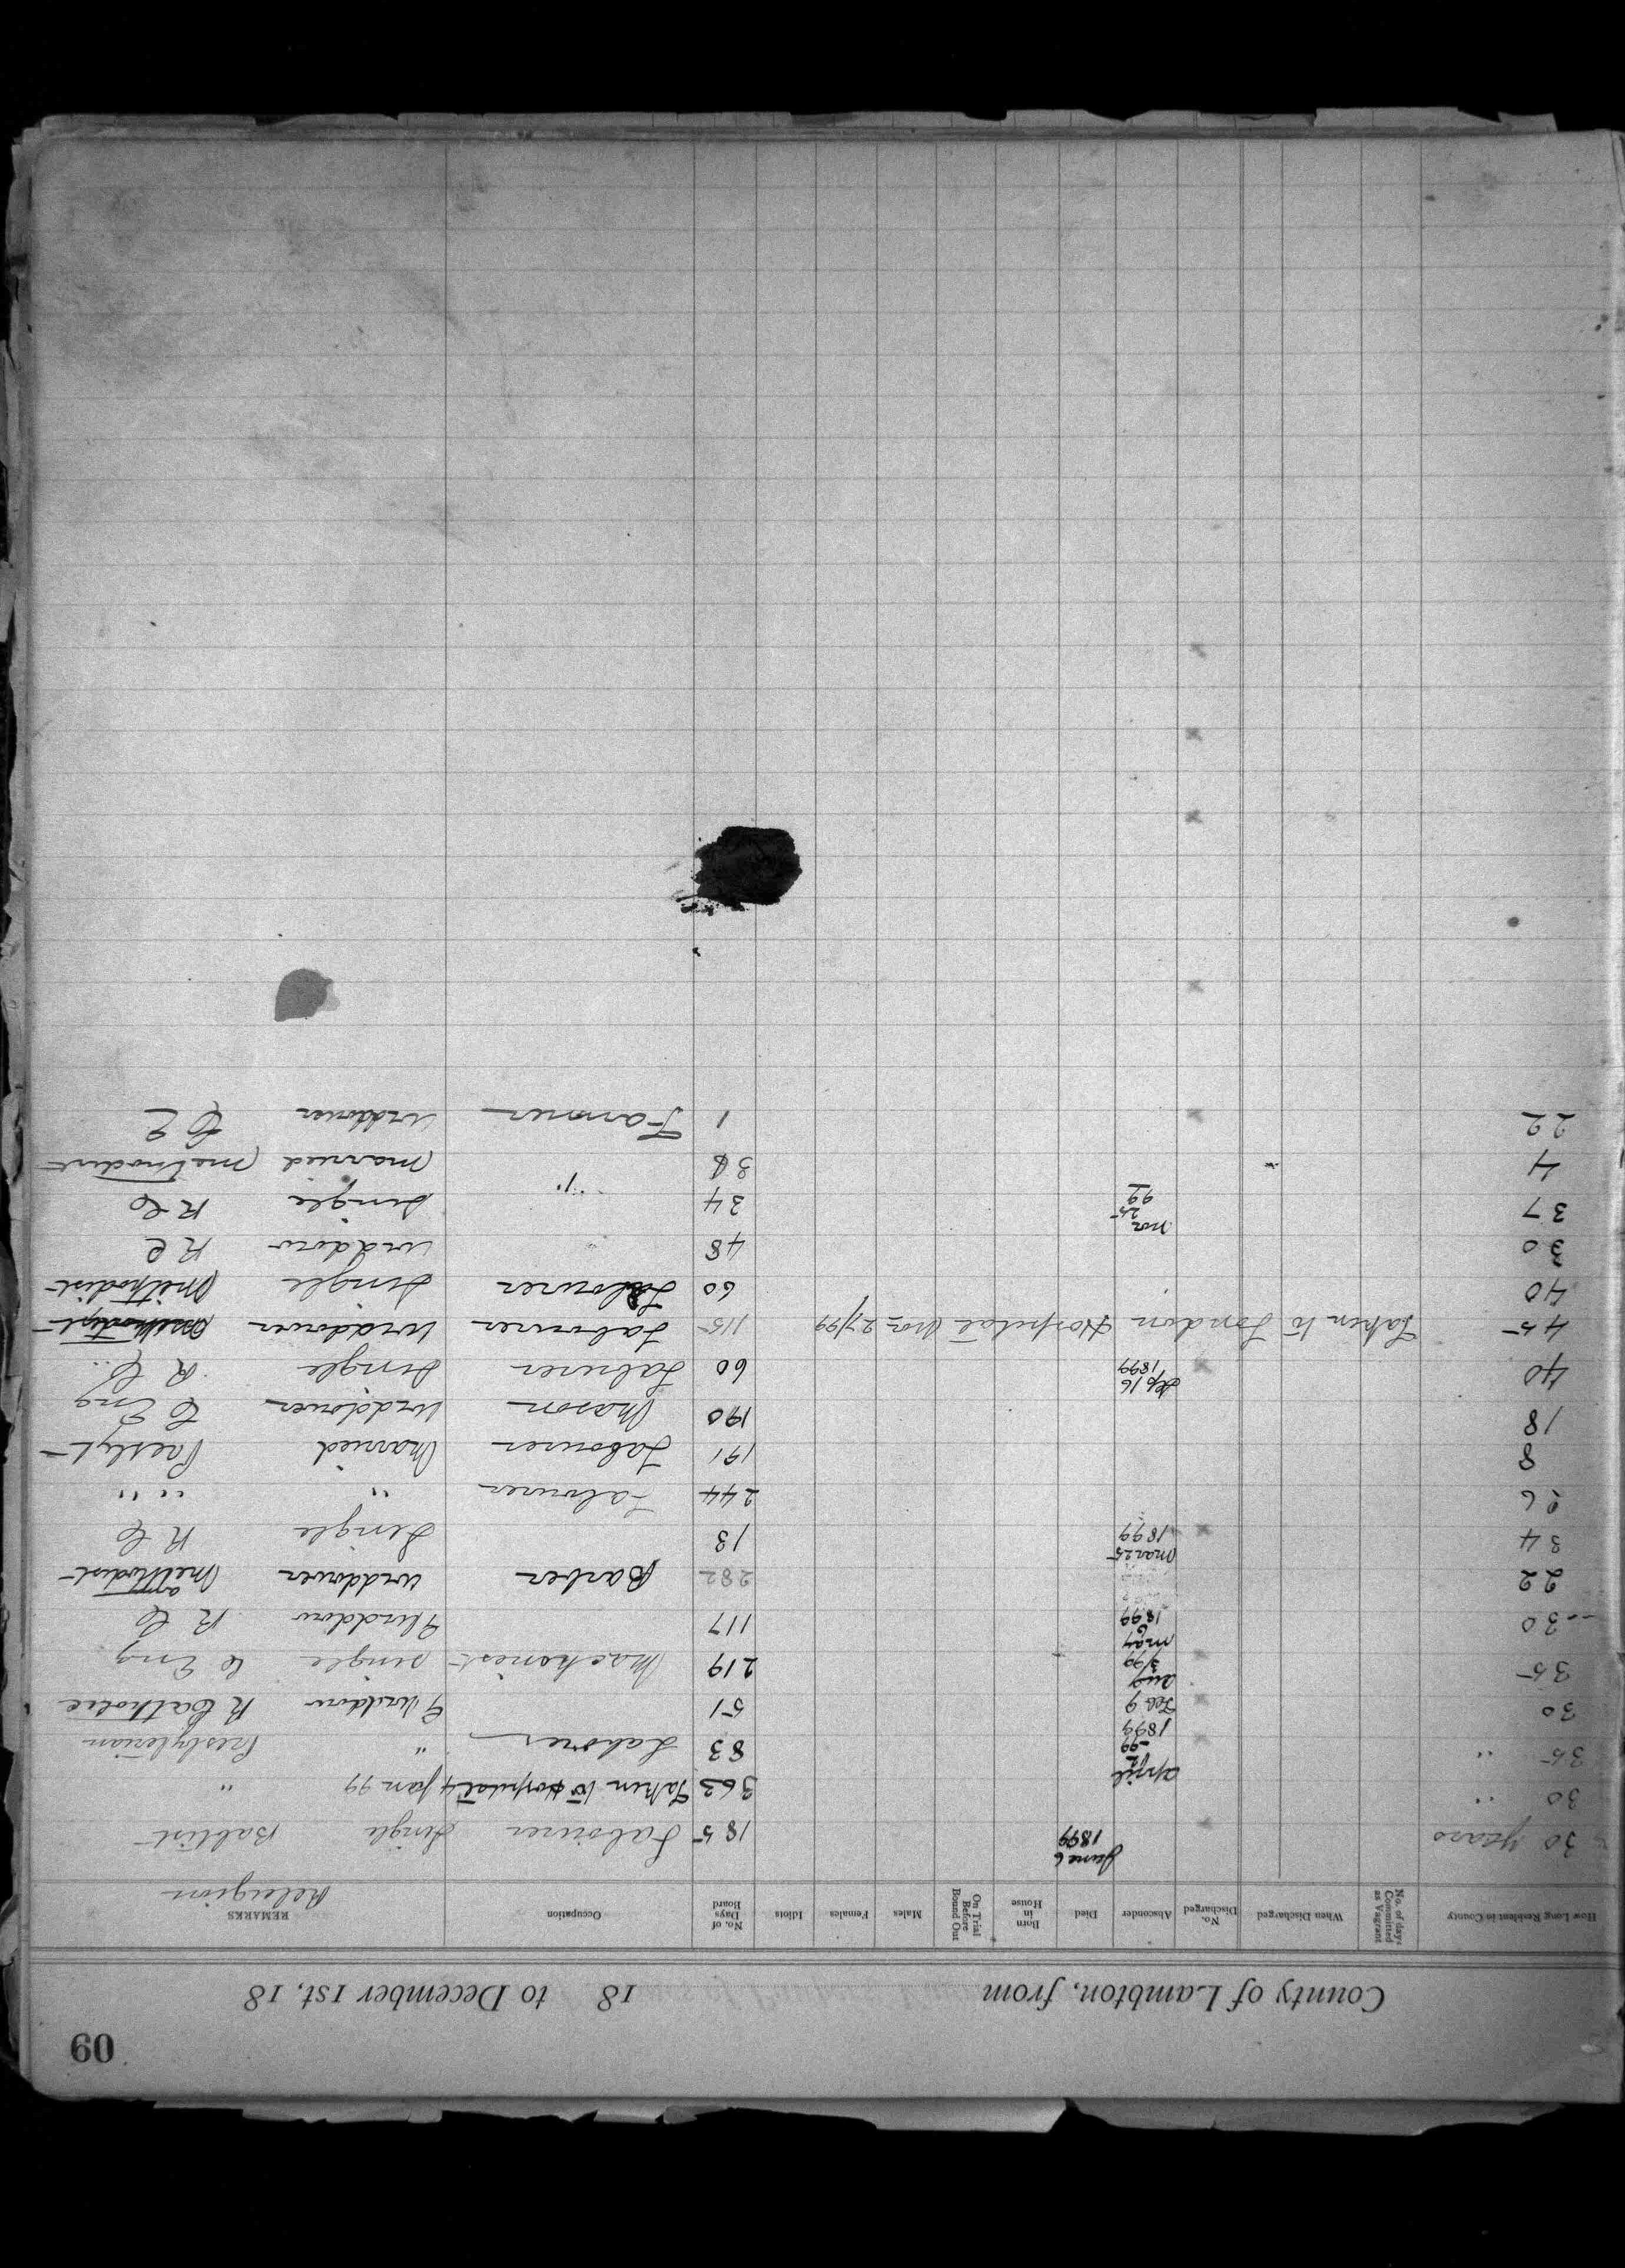 60
County of Lambton, from 18 to December 1st, 18
How Long Resident in County No. of days Committed as Vagrant When Discharged No. Discharged Absconder Died Born in House On Trial Before Bound Out Males Females Idiots No. of Days Board Occupation REMARKS Releigion
30 years June 6 1899 185 Labourer Single Babtist
30 " 363 Taken to Hospital 4 Jan 99 "
35 " April 99 83 Laborer " Presbyterian
30 1899 Feb 9 51 Widdow R Catholic
35 Aug 3/99 219 Machanist single C Eng
30 May 6 1899 117 Widdow R C
22 282 Barber widdower Methodist
34 Mar 25 1899 13 Single R C
26 244 Labourer " " "
8 191 Labourer Married Presbyt
18 190 Mason Widdower C Eng
40 Sep 16 1899 60 Labourer Single R C
45 Taken to London Hospital Nov 27/99 115 Labourer Widdower Methodist
40 60 Labourer Single Methodist
30 48 " widdow R C
37 Nov 25 99 34 " Single R C
4 3 married Methodist
22 1 Farmer widdower C E